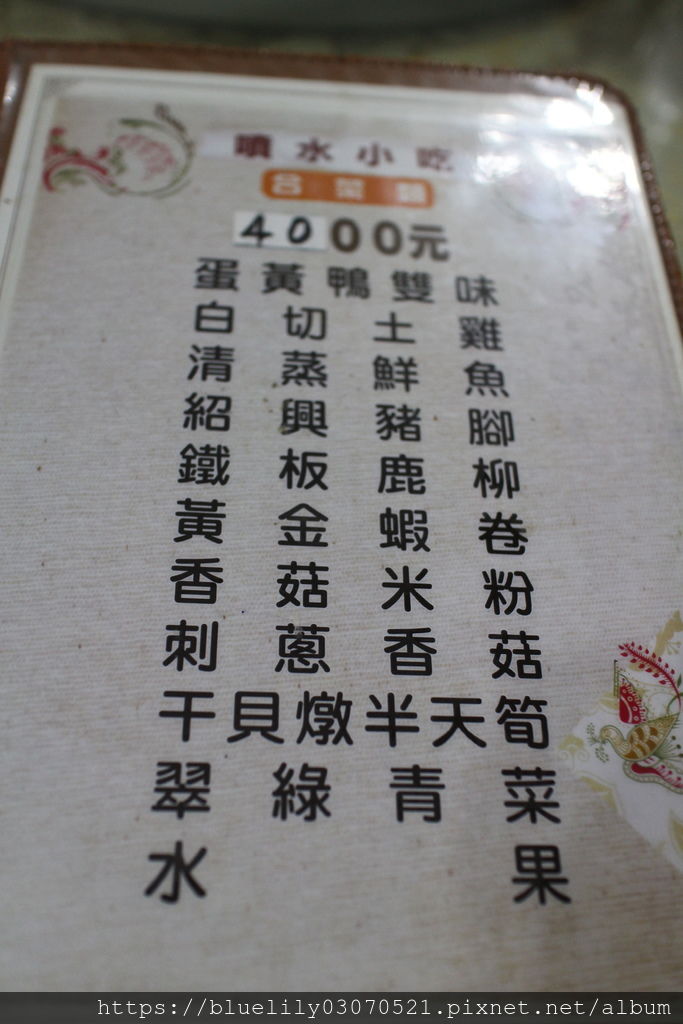 噴水小吃
合菜類
4000元
蛋黃鴨雙味
白切土雞
清蒸鮮魚
紹興豬腳
鐵板鹿柳
黃金蝦卷
香菇米粉
刺蔥香菇
干貝燉半天筍
翠綠青菜
水果
https://bluelily03070521.pixnet.net/album